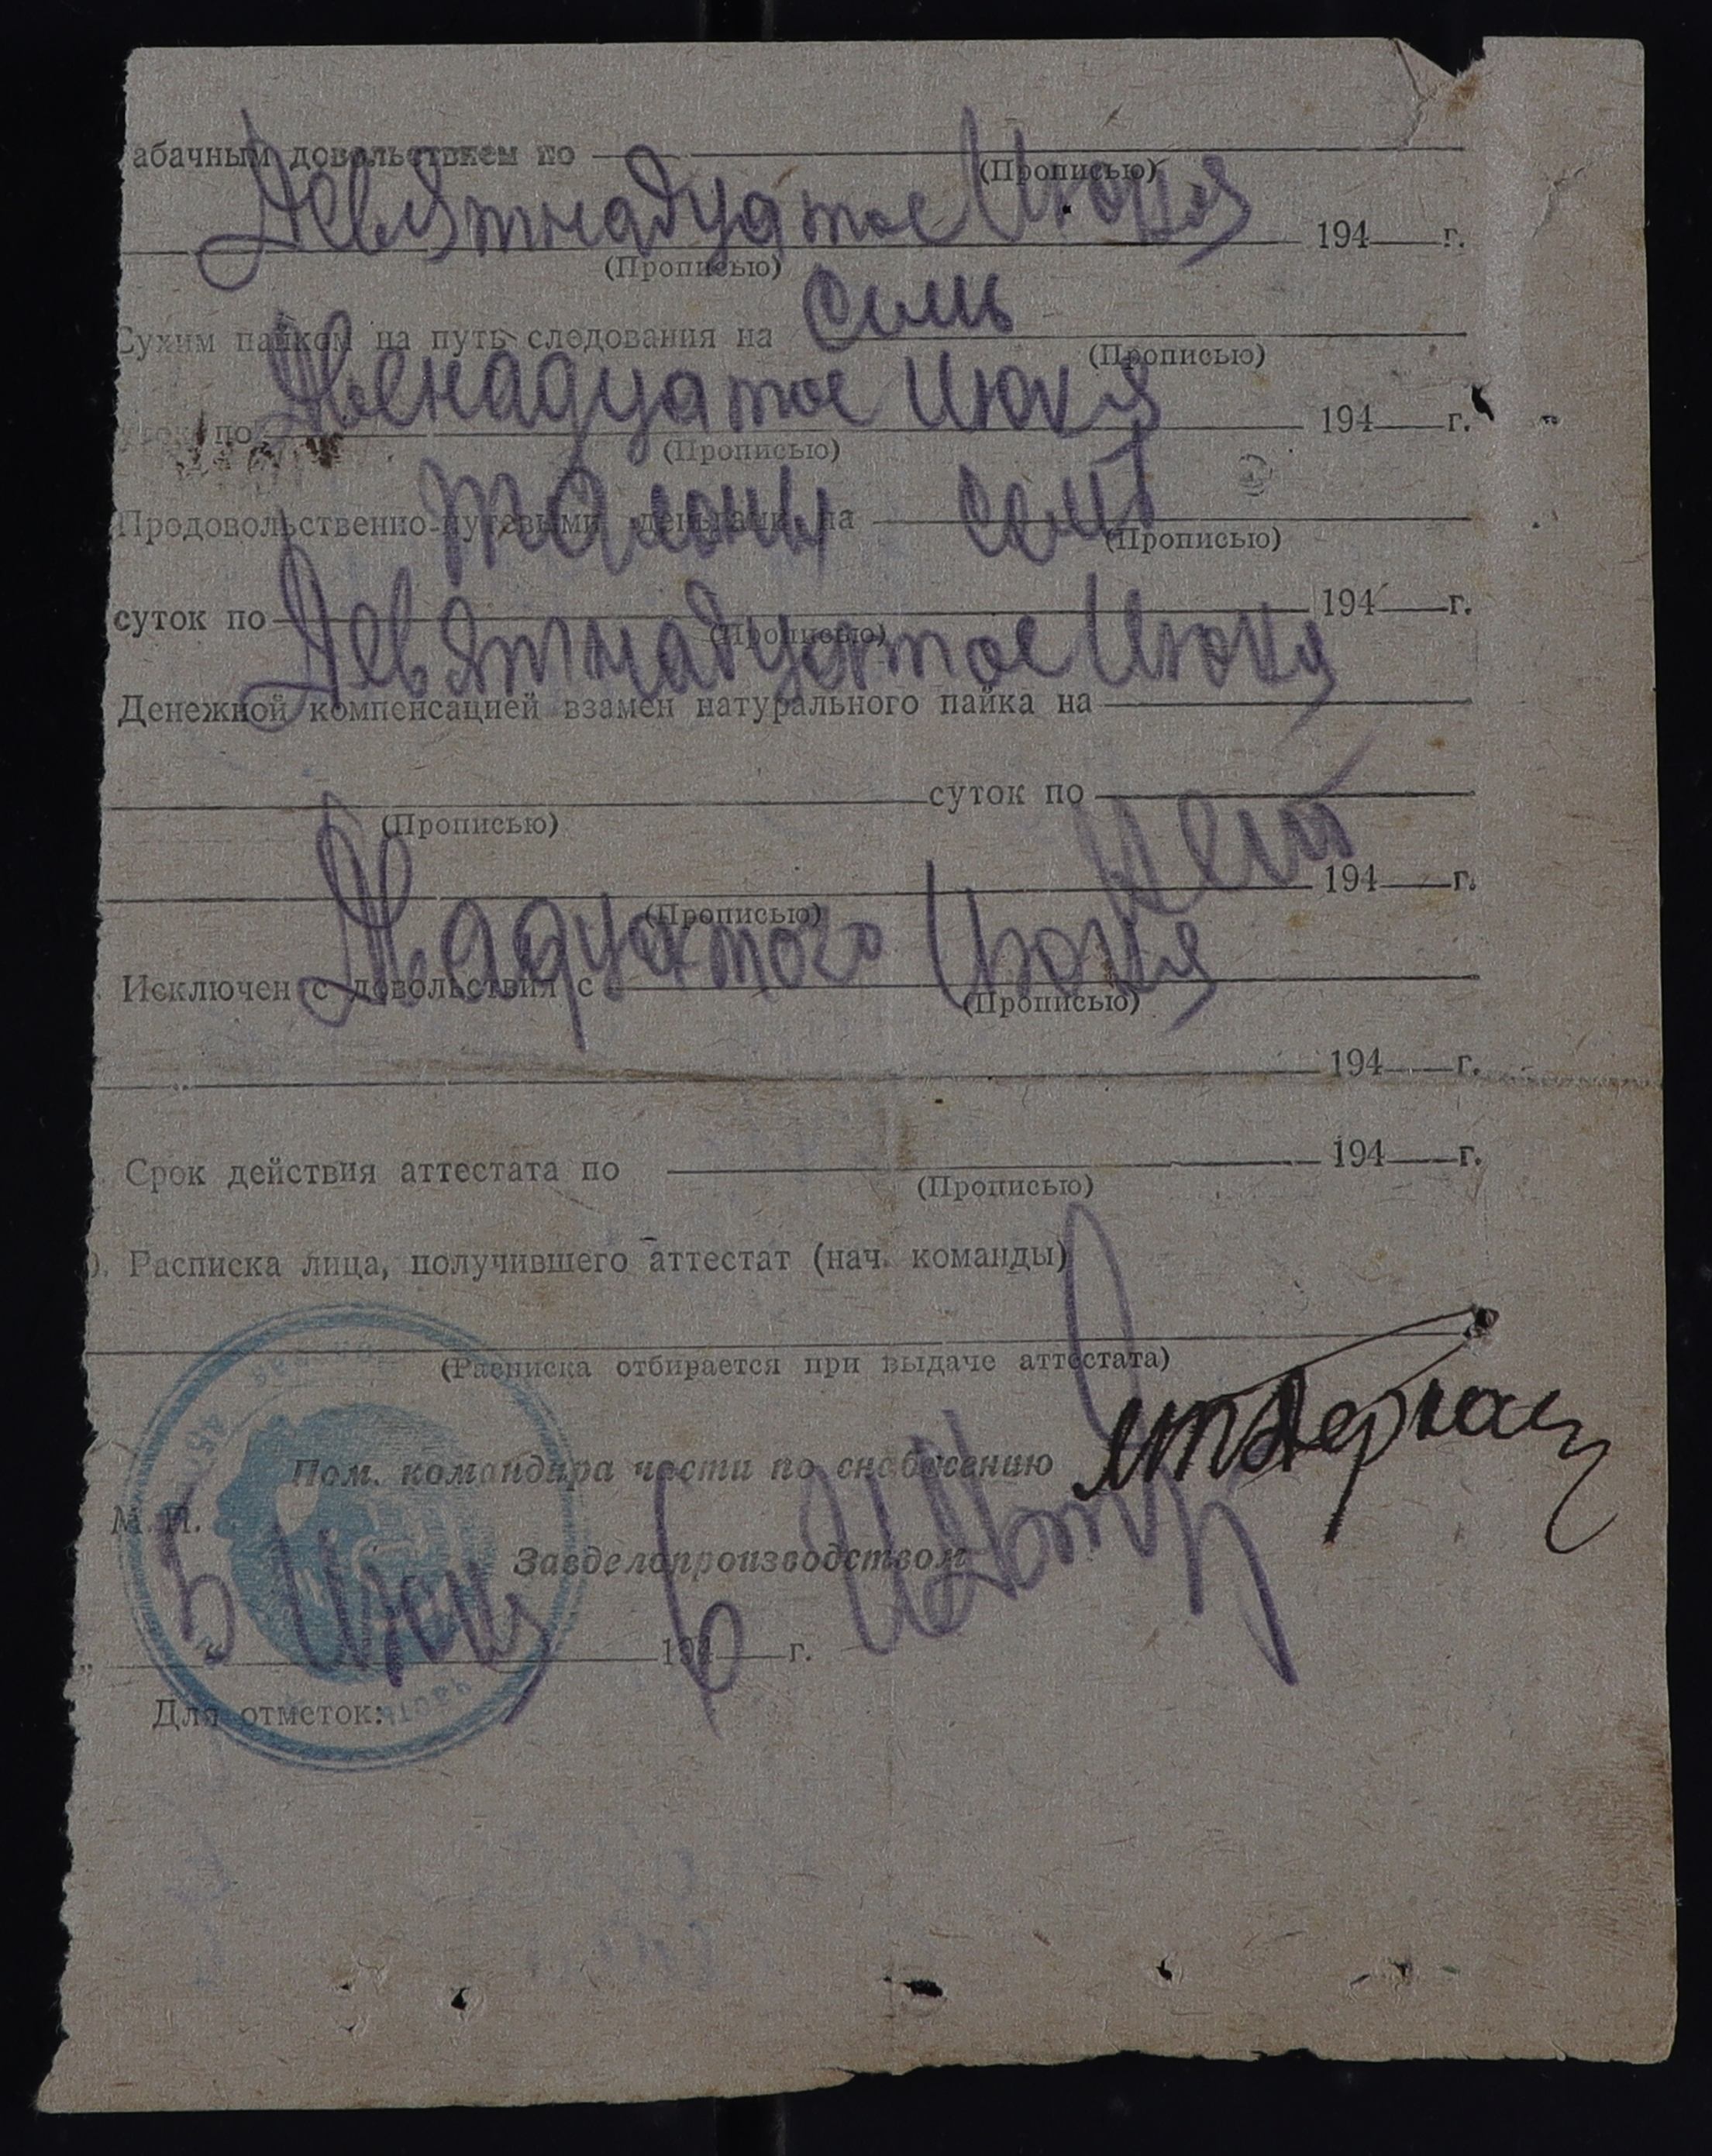 абачным довольствием по
(Прописью)
Девятнадцатое Июня 194 г.
(Прописью)
Сухим пайком на путь следования на семь
(Прописью)
суток по Двенадцатое Июня 194 г.
(Прописью)
Продовольственно-путевыми деньгами на талоны семь
(Прописью)
суток по Девятнадцатое Июня 194 г.
(Прописью)
Денежной компенсацией взамен натурального пайка на
суток по
(Прописью)
нет 194 г.
(Прописью)
Исключен с довольствия с Двадцатого Июня
(Прописью)
194 г.
Срок действия аттестата по 194 г.
(Прописью)
). Расписка лица, получившего аттестат (нач. команды)
(Расписка отбирается при выдаче аттестата)
Пом. командира части по снабжению
М. П.
Завделопроизводством
5 Июня 194 6 г.
Для отметок: